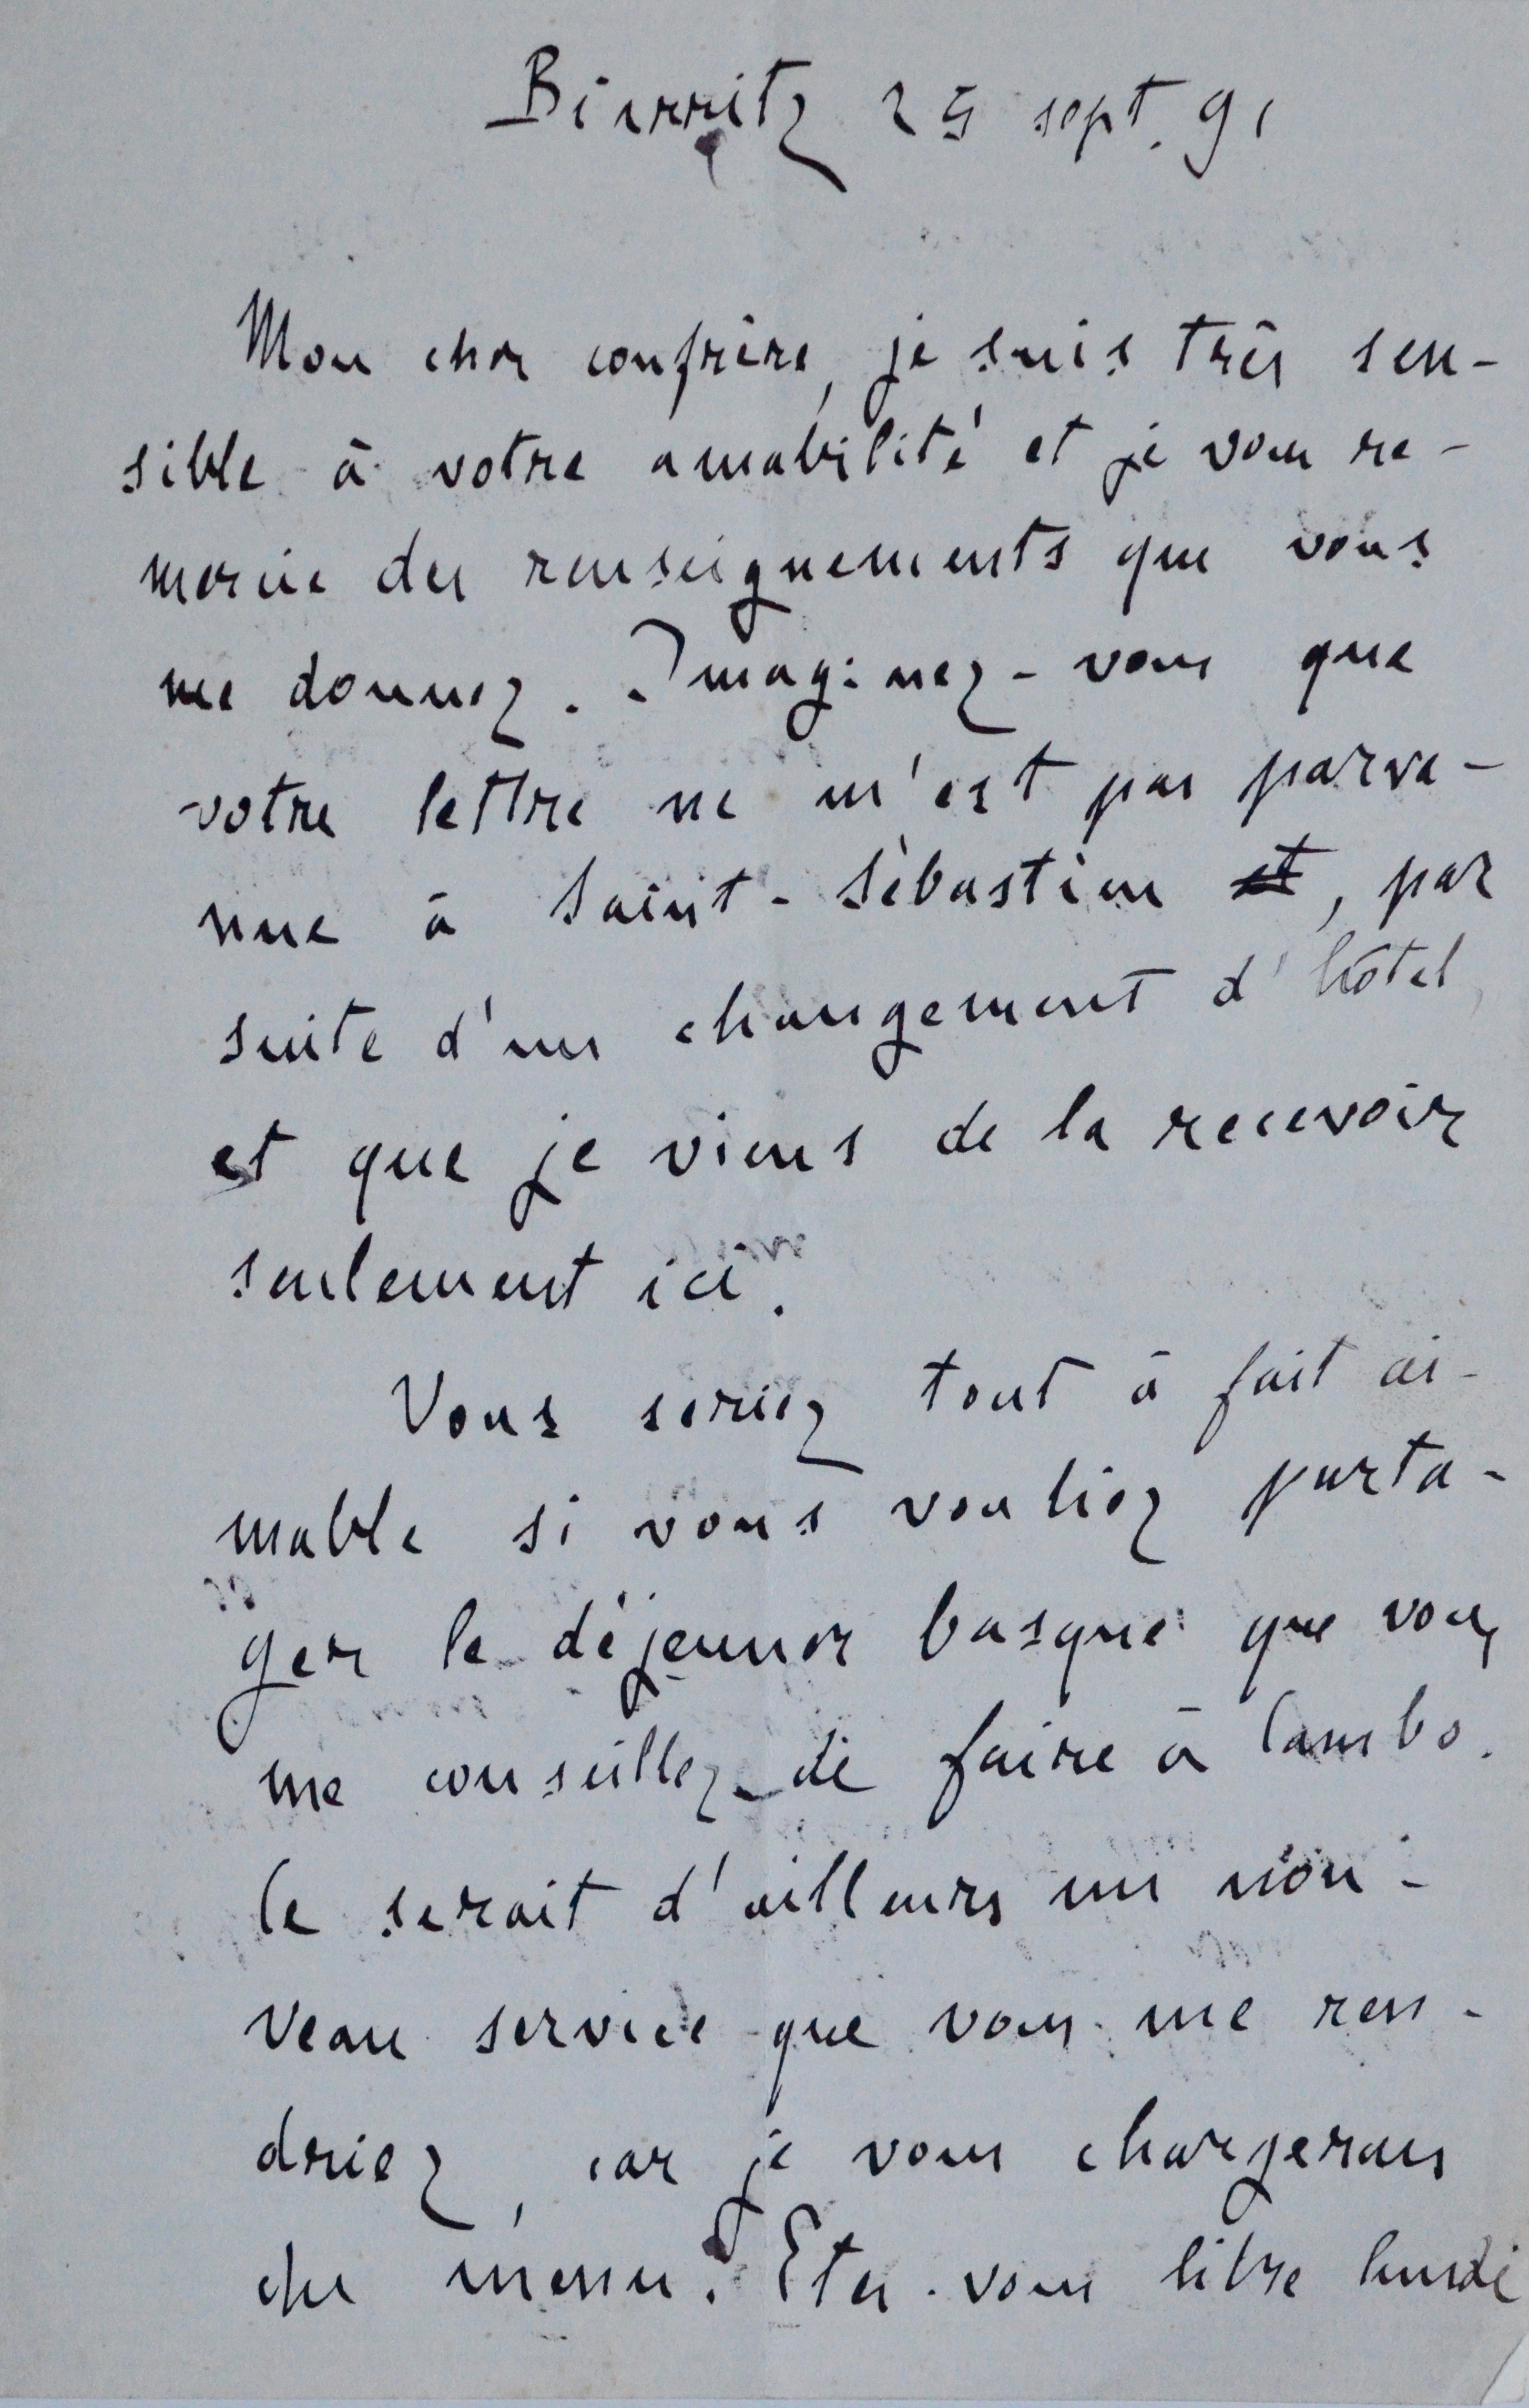 Biarritz 25 sept. 91
Mon cher confrère, je suis très sen-
sible à votre amabilité et je vous re-
mercie des renseignements que vous
me donnez. Imaginez-vous que
votre lettre ne m'est pas parve-
nue à Saint-Sébastien et, par
suite d'un changement d'hôtel,
et que je viens de la recevoir
seulement ici.
Vous seriez tout à fait ai-
mable si vous vouliez parta-
ger le déjeuner basque que vous
me conseillez de faire à Cambo.
Ce serait d'ailleurs un nou-
veau service que vous me ren-
driez, car je vous chargerais
du menu. Etes-vous libre lundi